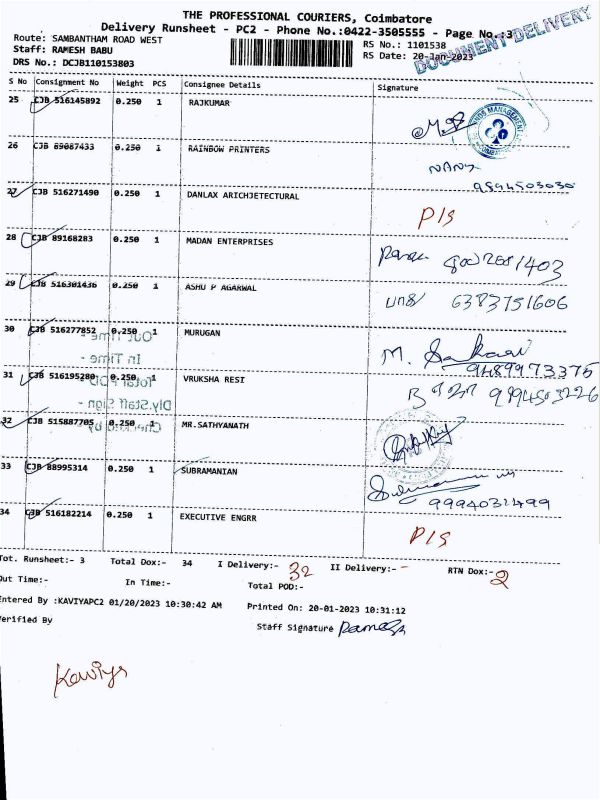 THE PROFESSIONAL COURIERS, Coimbatore
Delivery Runsheet - PC2 - Phone No.:0422-3505555 - Page No.:3
DOCUMENT DELIVERY
Route: SAMBANTHAM ROAD WEST
RS No.: 1101538
Staff: RAMESH BABU
RS Date: 20-Jan-2023
DRS No.: DCJB110153803
S No Consignment No Weight PCS Consignee Details Signature
25 CJB 516145892 0.250 1 RAJKUMAR
26 CJB 89087433 0.250 1 RAINBOW PRINTERS
9594503030
27 CJB 516271490 0.250 1 DANLAX ARICHJETECTURAL
P/S
28 CJB 89168283 0.250 1 MADAN ENTERPRISES
29 CJB 516301436 0.250 1 ASHU P AGARWAL
6383751606
30 CJB 516277852 0.250 1 MURUGAN
Out Time -
In Time -
M.
9489973375
31 CJB 516195280 0.250 1 VRUKSHA RESI
Total POD
9994503226
Dly.Staff Sign -
32 CJB 515887705 0.250 1 MR.SATHYANATH
33 CJB 88995314 0.250 1 SUBRAMANIAN
9994032499
34 CJB 516182214 0.250 1 EXECUTIVE ENGRR
P/S
Tot. Runsheet:- 3 Total Dox:- 34 I Delivery:- 32 II Delivery:- - RTN Dox:- 2
Out Time:- In Time:- Total POD:-
Entered By :KAVIYAPC2 01/20/2023 10:30:42 AM Printed On: 20-01-2023 10:31:12
Verified By
Staff Signature Ramesh
Kaviya